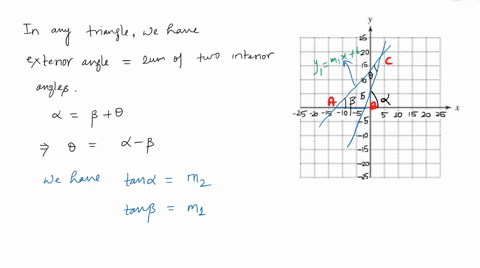 In any triangle, we have
exterior angle = sum of two interior
angles.
α = β + θ
⇒ θ = α − β
We have tanα = m₂
tanβ = m₁
y
25
20
15
10
5
y₁ = m₁x + b
C
θ
A
β
B
α
x
-25 -20 -15 -10 -5 0 5 10 15 20 25
-5
-10
-15
-20
-25